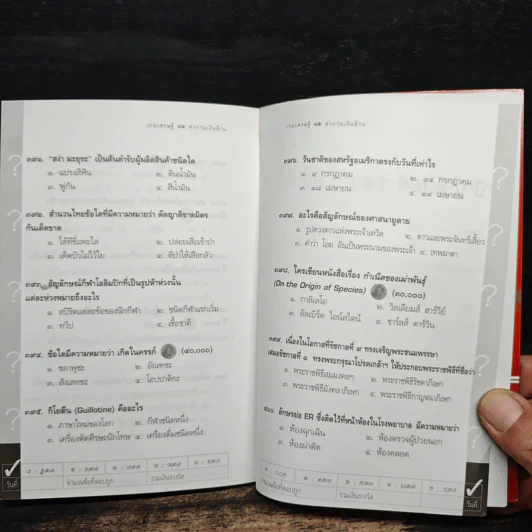 เกมเศรษฐี ๑๒ คำถามเงินล้าน
๓๙๑. "สง่า มะยุระ" เป็นต้นตำรับผู้ผลิตสินค้าชนิดใด
๑. แปรงสีฟัน ๒. ดินน้ำมัน
๓. พู่กัน ๔. สีน้ำมัน
๓๙๒. สำนวนไทยข้อใดที่มีความหมายว่า ตัดญาติขาดมิตร
กันเด็ดขาด
๑. ได้ทีขี่แพะไล่ ๒. ปล่อยเสือเข้าป่า
๓. เด็ดบัวไม่ไว้ใย ๔. ตีปลาให้เสือกลัว
๓๙๓. สัญลักษณ์กีฬาโอลิมปิกที่เป็นรูปห้าห่วงนั้น
แต่ละห่วงหมายถึงอะไร
๑. สปิริตแต่ละข้อของนักกีฬา ๒. ชนิดกีฬาแรกเริ่ม
๓. ทวีป ๔. เชื้อชาติ
๓๙๔. ข้อใดมีความหมายว่า เกิดในครรภ์ (๔๐,๐๐๐)
๑. ชลาพุชะ ๒. อัณฑชะ
๓. สังเสทชะ ๔. โอปปาติกะ
๓๙๕. กิโยติน (Guillotine) คืออะไร
๑. ภาษาใหม่ของโลก ๒. กีฬาชนิดหนึ่ง
๓. เครื่องตัดศีรษะนักโทษ ๔. เครื่องดื่มชนิดหนึ่ง
จำนวนข้อที่ตอบถูก รวมเงินรางวัล
วันที่
เกมเศรษฐี ๑๒ คำถามเงินล้าน
๓๙๖. วันชาติของสหรัฐอเมริกาตรงกับวันที่เท่าไร
๑. ๔ กรกฎาคม ๒. ๑๔ กรกฎาคม
๓. ๑๘ เมษายน ๔. ๑๙ เมษายน
๓๙๗. อะไรคือสัญลักษณ์ของศาสนายูดาย
๑. รูปดวงดาวแห่งพระเจ้าเดวิด ๒. ดาวและพระจันทร์เสี้ยว
๓. คำว่า โอม อันเป็นพระนามของพระเจ้า ๔. เทพมาตา
๓๙๘. ใครเขียนหนังสือเรื่อง กำเนิดของเผ่าพันธุ์
(On the Origin of Species) (๓๐,๐๐๐)
๑. กาลิเลโอ ๒. วิลเลียมส์ ฮาร์วีย์
๓. อัลเบิร์ต ไอน์สไตน์ ๔. ชาร์ลส์ ดาร์วิน
๓๙๙. เนื่องในโอกาสที่รัชกาลที่ ๙ ทรงเจริญพระชนมพรรษา
เสมอรัชกาลที่ ๑ ทรงพระกรุณาโปรดเกล้าฯ ให้ประกอบพระราชพิธีที่ชื่อว่า
๑. พระราชพิธีสมมงคลฯ ๒. พระราชพิธีรัชดาภิเษก
๓. พระราชพิธีมังคลาภิเษก ๔. พระราชพิธีกาญจนาภิเษก
๔๐๐. อักษรย่อ ER ซึ่งติดไว้ที่หน้าห้องในโรงพยาบาล มีความหมายว่า
๑. ห้องฉุกเฉิน ๒. ห้องตรวจผู้ป่วยนอก
๓. ห้องผ่าตัด ๔. ห้องคลอด
จำนวนข้อที่ตอบถูก รวมเงินรางวัล
วันที่